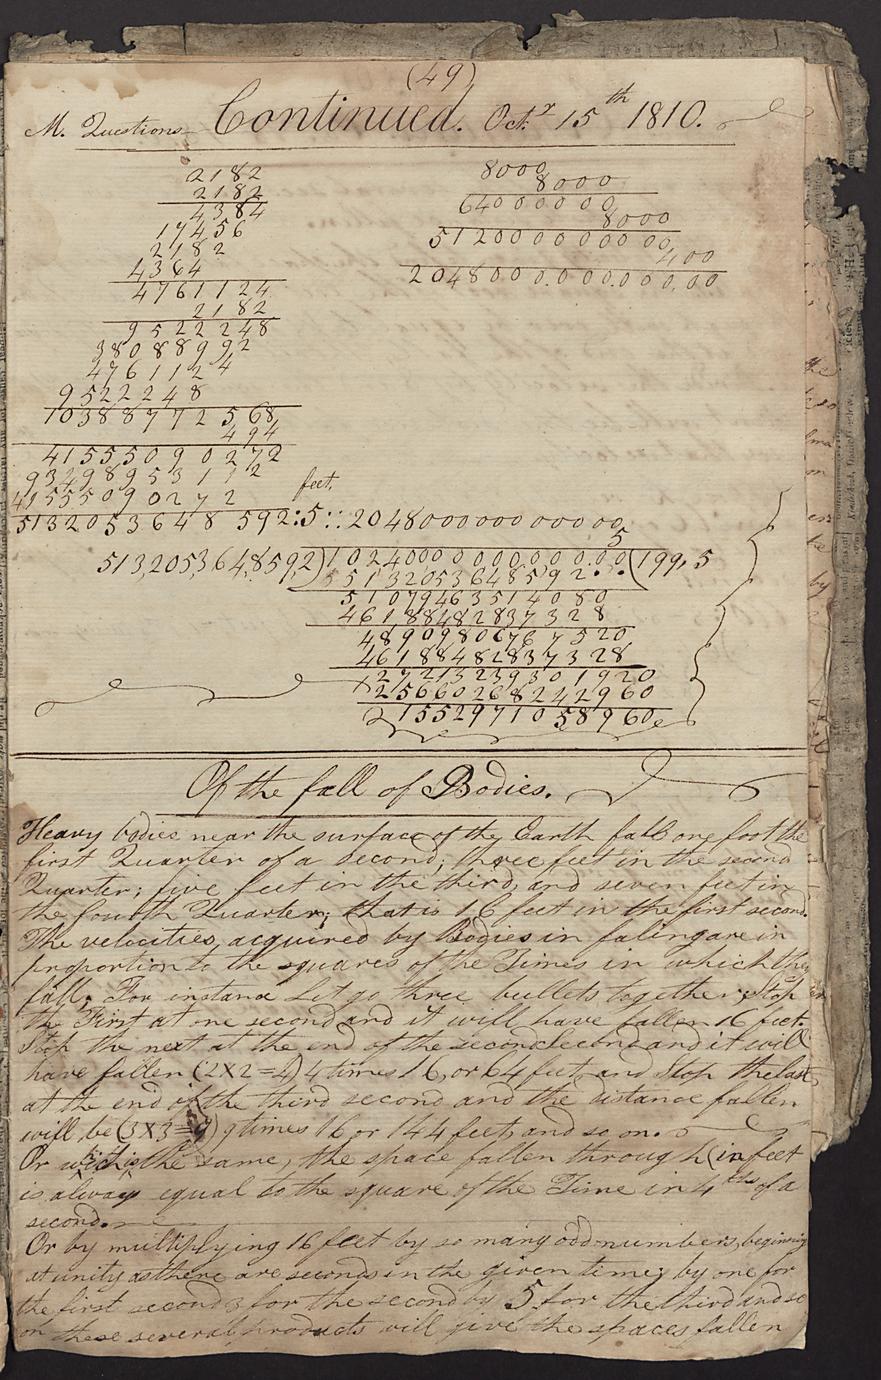 (49)
M. Questions Continued. Oct.r 15th 1810.
2182
2182
4384
17456
2182
4364
4761124
2182
9522248
38088992
4761124
9522248
10388772568
494
41555090272
93498953112
41555090272
5132053648592:5::2048000000000000
feet.
5
8000
8000
64000000
8000
512000000000
400
204800000000000
5132053648592)10240000000000000(199,5
5132053648592
51079463514080
46188482837328
48909806767520
46188482837328
27213239301920
25660268242960
1552971058960
Of the fall of Bodies.
Heavy bodies near the surface of the Earth fall one foot the
first Quarter of a second; three feet in the second
Quarter; five feet in the third, and seven feet in
the fourth Quarter; that is 16 feet in the first second.
The velocities, acquired by Bodies in faling are in
proportion to the squares of the Times in which they
fall; For instance Let go three bullets together; Stop
the First at one second and it will have fallen 16 feet.
Stop the next at the end of the second second and it will
have fallen (2X2=4) 4 times 16, or 64 feet, and Stop the last
at the end of the third second and the distance fallen
will be (3X3=9) 9 times 16 or 144 feet, and so on.
Or wich is the same, the space fallen through (in feet
is always equal to the square of the Time in 4ths of a
second.
Or by multiplying 16 feet by so many odd numbers, beginning
at unity as there are seconds in the given time; by one for
the first second 3 for the second by 5 for the third and so
on these several products will give the spaces fallen